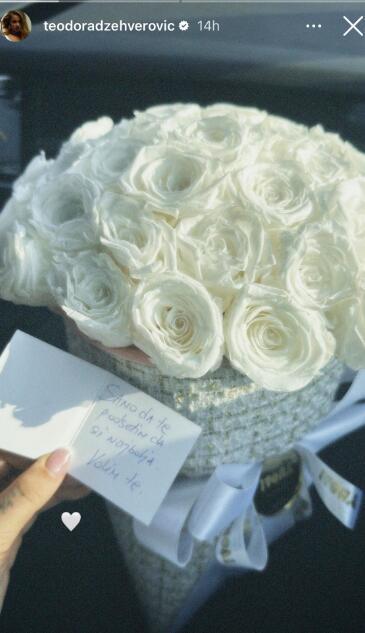 teodoradzehverovic 14h
Samo da te
podsetim da
si najbolja.
Volim te